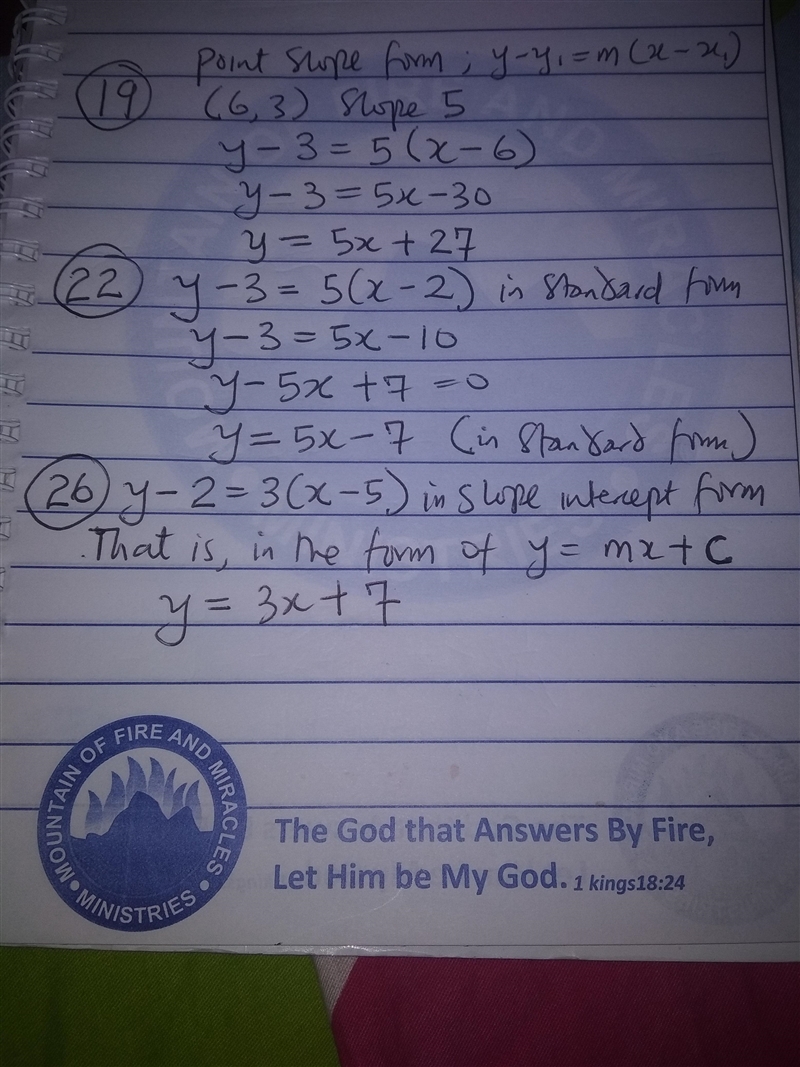 Point Slope form ; y-y₁ = m(x-x₁)
19 (6,3) Slope 5
y-3 = 5(x-6)
y-3 = 5x-30
y = 5x+27
22 y-3 = 5(x-2) in Standard form
y-3 = 5x-10
y-5x+7 = 0
y = 5x-7 (in Standard form)
26 y-2 = 3(x-5) in Slope intercept form
That is, in the form of y = mx+C
y = 3x+7
MOUNTAIN OF FIRE AND MIRACLES MINISTRIES
The God that Answers By Fire,
Let Him be My God. 1 kings18:24